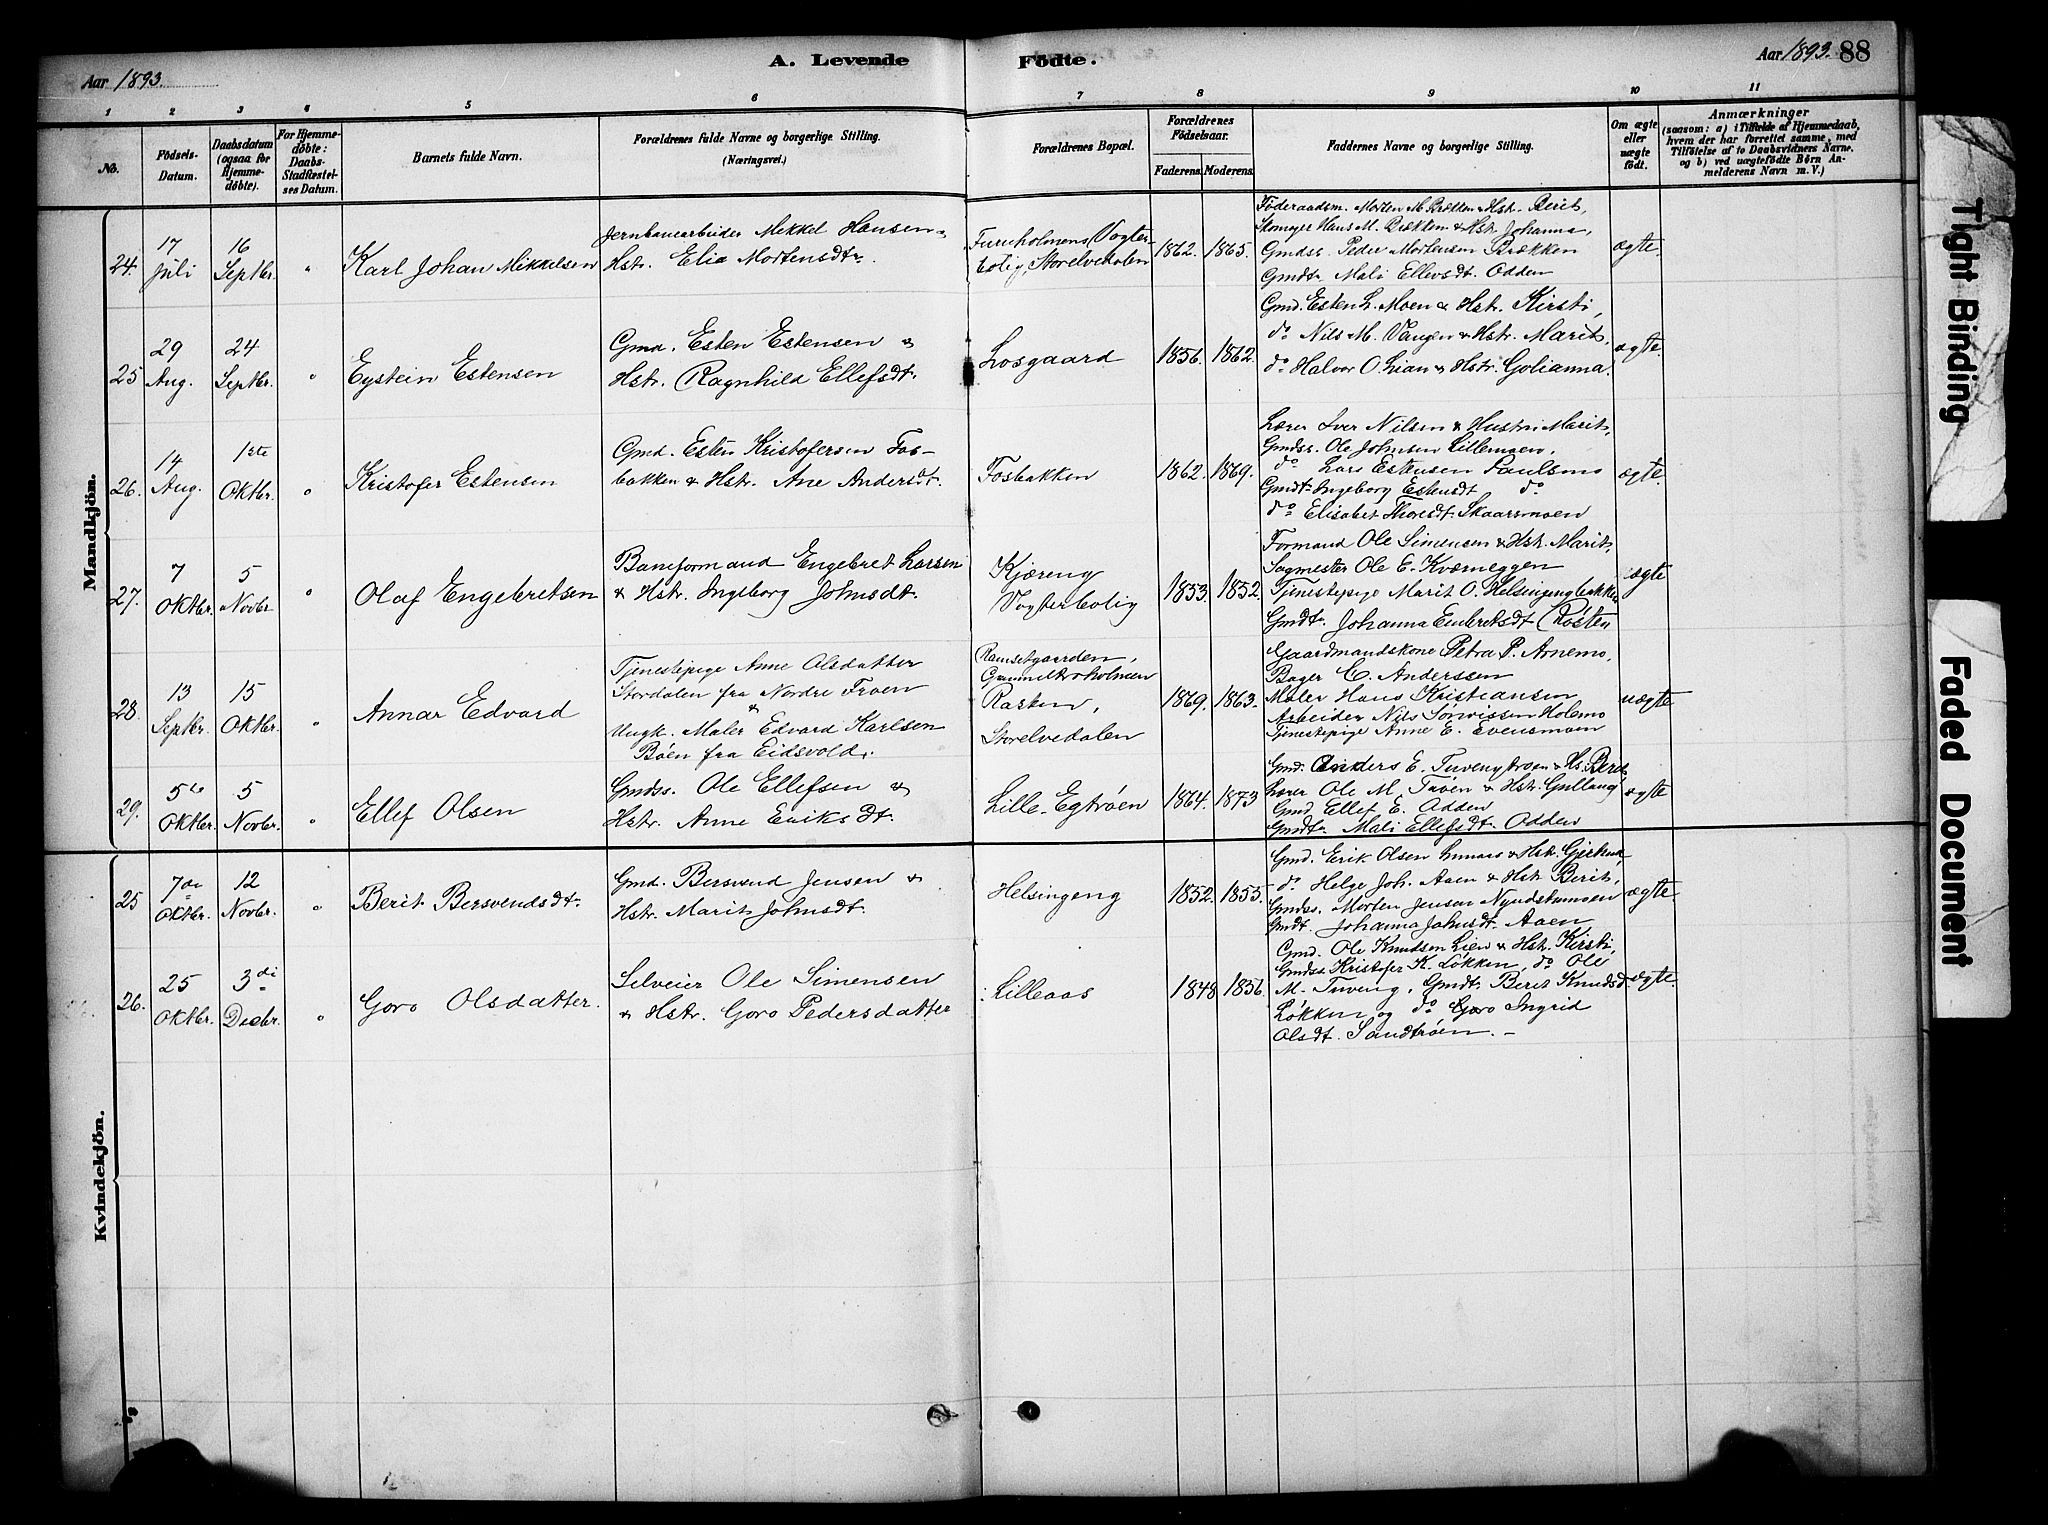 Aar 1893.
A. Levende
Födte.
Aar 1893. 88
1 2 3 4 5 6 7 8 9 10 11
No.
Födsels-
Datum.
Daabsdatum
(ogsaa for
Hjemme-
döbte).
For Hjemme-
döbte:
Daabs-
Stadfæstel-
ses Datum.
Barnets fulde Navn.
Forældrenes fulde Navne og borgerlige Stilling.
(Næringsvei.)
Forældrenes Bopæl.
Forældrenes
Födselsaar.
Faderens. Moderens.
Faddernes Navne og borgerlige Stilling.
Om ægte
eller
uægte
födt.
Anmærkninger
(saasom: a) i Tilfælde af Hjemmedaab,
hvem der har forrettet samme, med
Tilföielse af to Daabsvidners Navne,
og b) ved uægtefödte Börn An-
melderens Navn m. V.)
Mandkjön.
24. 17 Juli
16 Septbr.
"
Karl Johan Mikkelsen
Jernbanearbeider Mikkel Hansen &
Hstr. Elia Mortensdtr.
Furuholmens Vogter-
bolig, Storelvedalen
1862. 1865.
Föderaadsm. Morten M. Brækken & Hstr. Berit,
Skomager Hans M. Brækken & Hstr. Johanna,
Gmdss. Peder Mortensen Brækken
Gmdtr. Mali Ellevsdt. Odden
ægte.
25 29 Aug.
24 Septbr.
"
Eystein Estensen
Gmd. Esten Estensen &
Hstr. Ragnhild Ellefsdt.
Losgaard
1856. 1862.
Gmd. Esten L. Moen & Hstr. Kirsti,
do Nils M. Vangen & Hstr. Marit,
do Halvor O. Lian & Hstr. Golianna.
ægte.
26. 14 Aug.
1ste Oktbr.
"
Kristofer Estensen
Gmd. Esten Kristofersen Fos-
bakken & Hstr. Ane Andersdt.
Fosbakken
1862. 1869.
Lærer Iver Nilsen & Hustru Marit,
Gmdss. Ole Johnsen Lillemoen,
do Lars Estensen Paulsmo
Gmdt. Ingeborg Estensdt do
do Elisabet Thoresdt. Skaarsmoen
ægte.
27. 7 Oktbr.
5 Novbr
"
Olaf Engebretsen
Baneformand Engebret Larsen
& Hstr. Ingeborg Johnsdt.
Kjæreng
Vogterbolig
1853. 1852.
Formand Ole Simensen & Hstr. Marit,
Sagmester Ole E. Kværneggen
Tjenestepige Marit O. Helsingengbakken
Gmdt. Johanna Embretsdt Røsten
ægte
28. 13 Septbr.
15 Oktbr.
"
Annar Edvard
Tjenestepige Anne Olsdatter
Stordalen fra Nordre Froen
&
Ungk. Maler Edvard Karlsen
Böen fra Eidsvold.
Ramsetgaarden,
Rasken,
Storelvedalen
1869. 1863.
Gaardmandskone Petra P. Arnemo,
Bager C. Anderssen
Maler Hans Kristiansen
Arbeider Nils Holemo
Tjenestepige Anne E. Evensmoen
uægte
29. 5te Oktbr.
5 Novbr.
"
Ellef Olsen
Gmdss. Ole Ellefsen &
Hstr. Anne Eriksdt.
Lille-Egtröen
1864. 1873
Gmd. Anders E. & Hs. Berit
Lærer Ole M. Tröen & Hstr. Gullaug
Gmd Ellef E. Odden
Gmdtr. Mali Ellefsdt. Odden
ægte
Kvindekjön.
25 7de Oktbr.
12 Novbr.
"
Berit Bersvendsdt.
Gmd. Bersvend Jensen &
Hstr. Marit Johnsdt.
Helsingeng
1852. 1855.
Gmd. Erik Olsen & Hstr. Gjertrud,
do Helge Joh. Aaen & Hstr Berit,
Gmdss. Morten Jensen Nyndstumoen
Gmdt. Johanna Johnsdt. Aaen
ægte.
26. 25 Oktbr.
3di Decbr.
"
Goro Olsdatter.
Selveier Ole Simensen
& Hstr. Goro Pedersdatter
Lilleaas
1848 1856.
Gmd. Ole Knudsen Lien & Hstr. Kirsti,
Gmdss. Kristofer K. Løkken, do Ole
M. Tuveng, Gmdt. Berit Knudsd
Løkken og do Goro Ingrid
Olsdt. Sandtröen. -
ægte.
Tight Binding
Faded Document